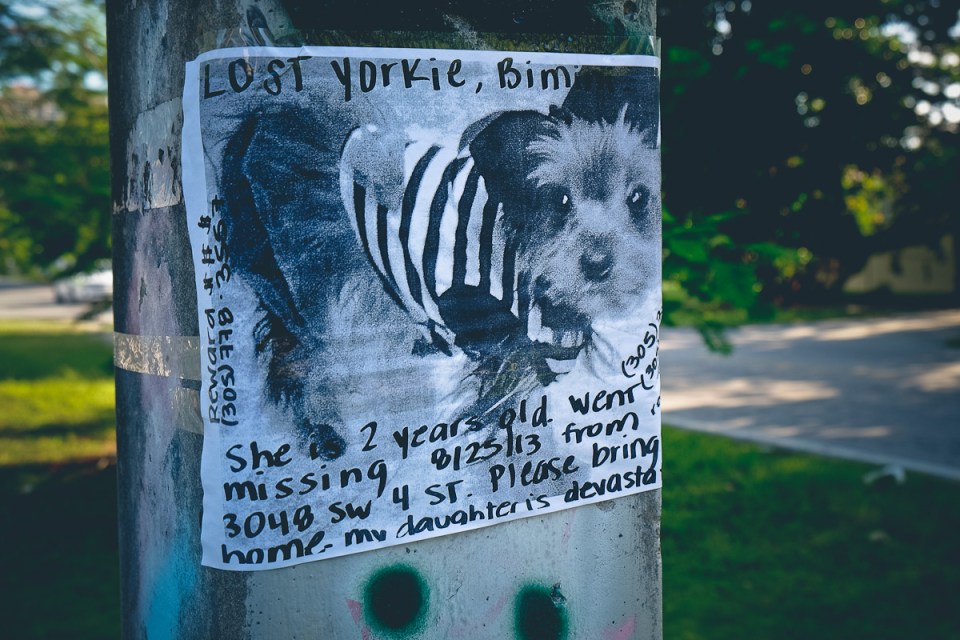 LOST Yorkie, Bim
Reward $$$
(305) 778.3557
(305)
(305)
She is 2 years old. went
missing 8/25/13 from
3048 SW 4 ST. Please bring
home. my daughter is devasta